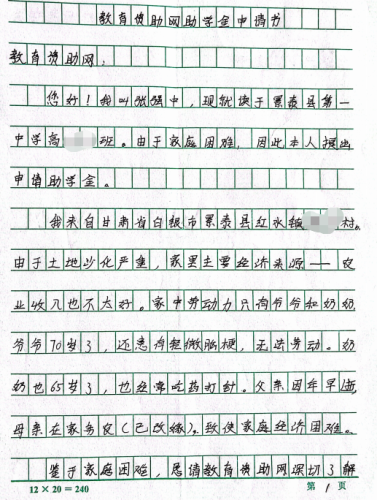 教育资助网助学金申请书
教育资助网：
您好！我叫张强中，现就读于景泰县第一
中学高班。由于家庭困难，因此本人提出
申请助学金。
我来自甘肃省白银市景泰县红水镇村。
由于土地沙化严重，家里主要经济来源——农
业收入也不太好。家中劳动力只有爷爷和奶奶，
爷爷70岁了，还患有轻微脑梗，无法劳动。奶
奶也65岁了，也经常吃药打针。父亲因年早逝，
母亲在家务农(已改嫁)。致使家庭经济困难。
鉴于家庭困难，恳请教育资助网深切了解
12×20=240
第1页